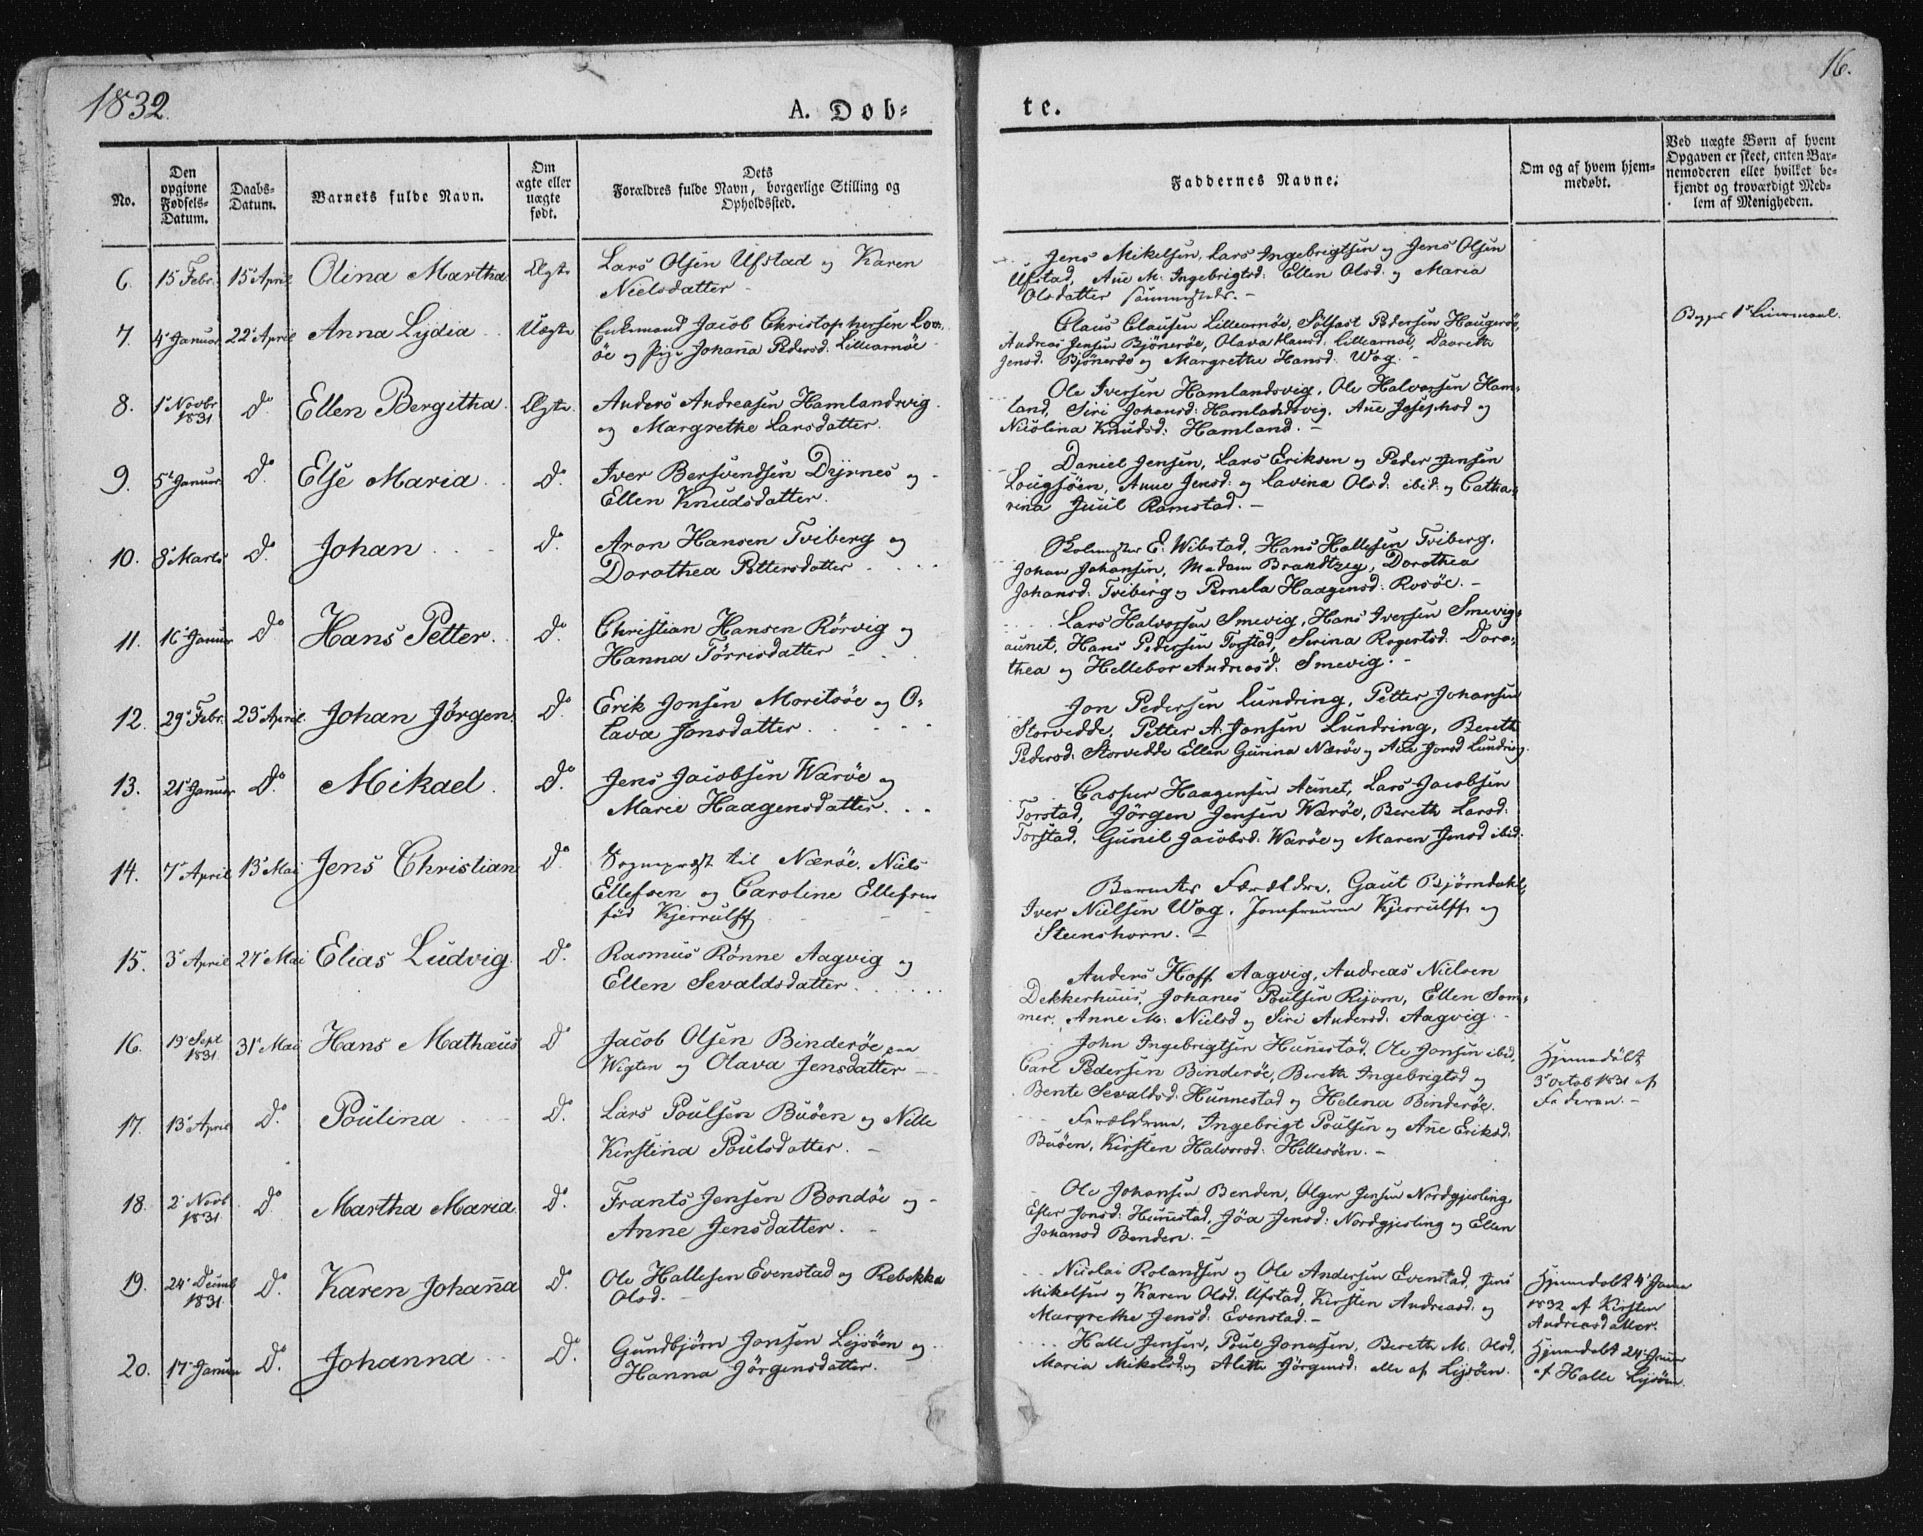 1832.
A. Døb-
te.
16.
No.
Den opgivne Fødsels-Datum.
Daabs-Datum.
Barnets fulde Navn.
Om ægte eller uægte født.
Dets Forældres fulde Navn, borgerlige Stilling og Opholdssted.
Faddernes Navne.
Om og af hvem hjem-meddøbt.
Ved uægte Børn af hvem Opgaven er skeet, enten Bar-nemoderen eller hvilket be-kjendt og troværdigt Med-lem af Menigheden.
6. 15 Febr. 15 April Olina Martha Ægte Lars Olsen Ufstad og Karen
Nielsdatter
Jens Mikelsen, Lars Ingebrigtsen og Jens Olsen
Ufstad, Añe M. Ingebrigtsd: Ellen Olsd: og Maria
Olsdatter
7. 4 Januar 22 April Anna Lydia Uægte Enkemand Jacob Christophersen Lor-
øe og Pige Johaña Pedersd: Lillearnøe
Claus Clausen Lillearnøe, Sølfast Pedersen Haugerøe,
Andreas Jensen Bjönerøe, Olava Hansd. Lillearnøe, Dorreth
Jensd. Bjönerøe og Margrethe Hansd. Wog.
8. 1 Novbr 1831 Do Ellen Bergitha Ægte Anders Andreasen Hamlandsvig
og Margrethe Larsdatter.
Ole Iversen Hamlandsvig, Ole Halvorsen Ham-
land, Siri Johansd: Hamlandsvig, Añe Josephsd og
Nicolina Knudsd: Hamland.
9. 5 Januar Do Else Maria Do Iver Bersvendsen Dyrnes og
Ellen Knudsdatter.
Daniel Jensen, Lars Eriksen og Peder Jensen
Lougsöen, Anne Jensd: og Lavina Olsd: ibid: og Catha-
rina Juul Ramstad.
10. 8 Marts Do Johan Do Aron Hansen Tviberg og
Dorothea Pettersdatter
E. Wibstad, Hans Hallesen Tviberg,
Johan Johansen, Madam Brandtzeg, Dorothea
Johansd: Tviberg og Pernela Haagensd: Rosöe.
11. 16 Januar Do Hans Petter Do Christian Hansen Rörvig og
Hanna Törrisdatter
Lars Halvorsen Smevig, Hans Iversen Smevig-
aunet, Hans Pedersen Torstad, Serina Rogertsd: Doro-
thea og Hellebor Andreasd: Smevig.
12. 29 Febr. 23 April Johan Jörgen Do Erik Jonsen Moritsöe og O-
lava Jonsdatter
Jon Pedersen Lundring, Petter Johansen
Storvedde, Petter A. Jonsen Lundring, Bereth
Pedersd: Storvedde Ellen Gurina Næröe og Añe Jonsd Lundring.
13. 21 Januar Do Mikael Do Jens Jacobsen Waröe og
Marie Haagensdatter
Casper Haagensen Aunet, Lars Jacobsen
Torstad, Jörgen Jensen Waröe, Bereth Larsd:
Torstad, Gunil Jacobsd: Waröe og Maren Jensd ibid:
14. 7 April 13 Mai Jens Christian Do Sognepræst til Næröe, Niels
Ellefsen og Caroline Ellefsen
fød Kjerrulff
Barnets Forældre, Gaut Bjørndahl,
Iver Nielsen Wog, Jomfruerne Kjerrulff og
Steenshorn.
15. 3 April 27 Mai Elias Ludvig Do Rasmus Rönne Aagvig og
Ellen Sevaldsdatter
Anders Hoff Aagvig, Andreas Nielsen
Dekkerhuus, Johanes Poulsen Ryom, Ellen Som-
mer, Anne M: Nielsd og Siri Andersd: Aagvig
16. 19 Sept 1831 31 Mai Hans Mathæus Do Jacob Olsen Binderöe paa
Wigten og Olava Jensdatter
John Ingebrigtsen Huñestad, Ole Jonsen ibid,
Carl Pedersen Binderöe, Bereth Ingebrigtsd og
Bente Sevaldsd: Hunnestad og Helena Binderöe.
Hjemedöbt
3 Octob 1831 af
Faderen.
17. 13 April Do Poulina Do Lars Poulsen Buöen og Nille
Kirstina Poulsdatter.
Forældrene, Ingebrigt Poulsen og Añe Eriksd:
Buöen, Kirsten Halvorsd: Hillesöen.
18. 2 Novb 1831 Do Martha Maria Do Frants Jensen Bondöe og
Anne Jensdatter.
Ole Johansen Benden, Olger Jensen Nordgjesling,
Efter Jonsd: Huñestad, Jöa Jensd: Nordgjesling og Ellen
Johansd Benden.
19. 24 Decemb 1831 Do Karen Johaña Do Ole Hallesen Evenstad og Rebekka
Olsd.
Nicolai Rolandsen og Ole Andersen Evenstad, Jens
Mikelsen og Karen Olsd: Ufstad, Kirsten Andreasd: og
Margrethe Jensd: Evenstad.
Hjemedøbt 4 Janu
1832 af Kirsten
Andreasdatter.
20. 17 Januar Do Johanna Do Gundbjörn Jonsen Lysöen og
Hanna Jörgensdatter.
Halle Jensen, Poul Jonasen, Bereth M. Olsd,
Maria Mikelsd og Alette Jörgensd: alle af Lysöen.
Hjemedøbt 24 Januar
af Halle Lysöen.